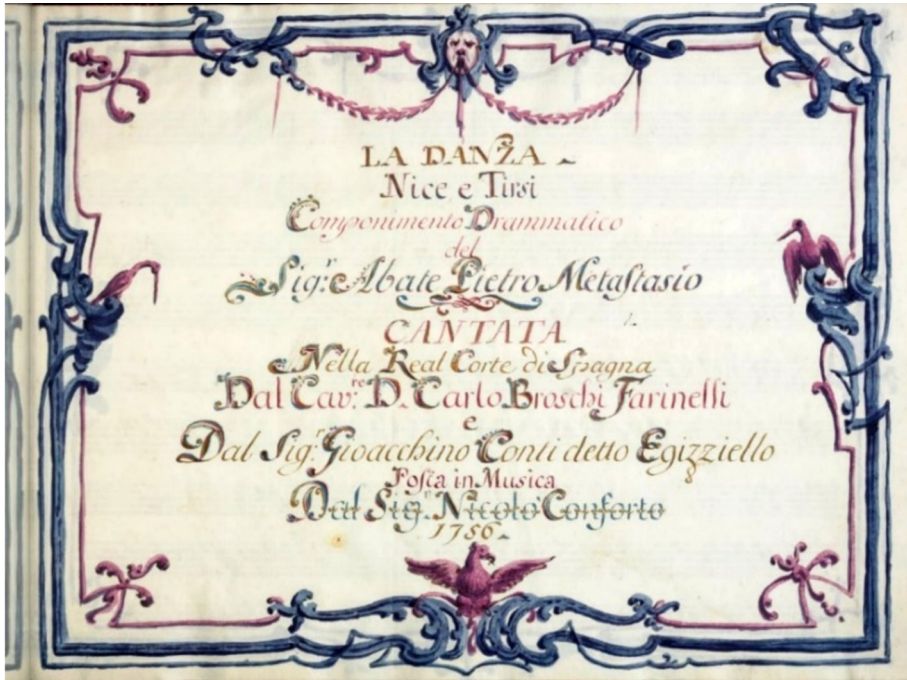 LA DANZA
Nice e Tirsi
Componimento Drammatico
del
Sig.r Abate Pietro Metastasio
CANTATA
Nella Real Corte di Spagna
Dal Cav.re D. Carlo Broschi Farinelli
e
Dal Sig.r Gioacchino Conti detto Egizziello
Posta in Musica
Dal Sig.r Nicolò Conforto
1756